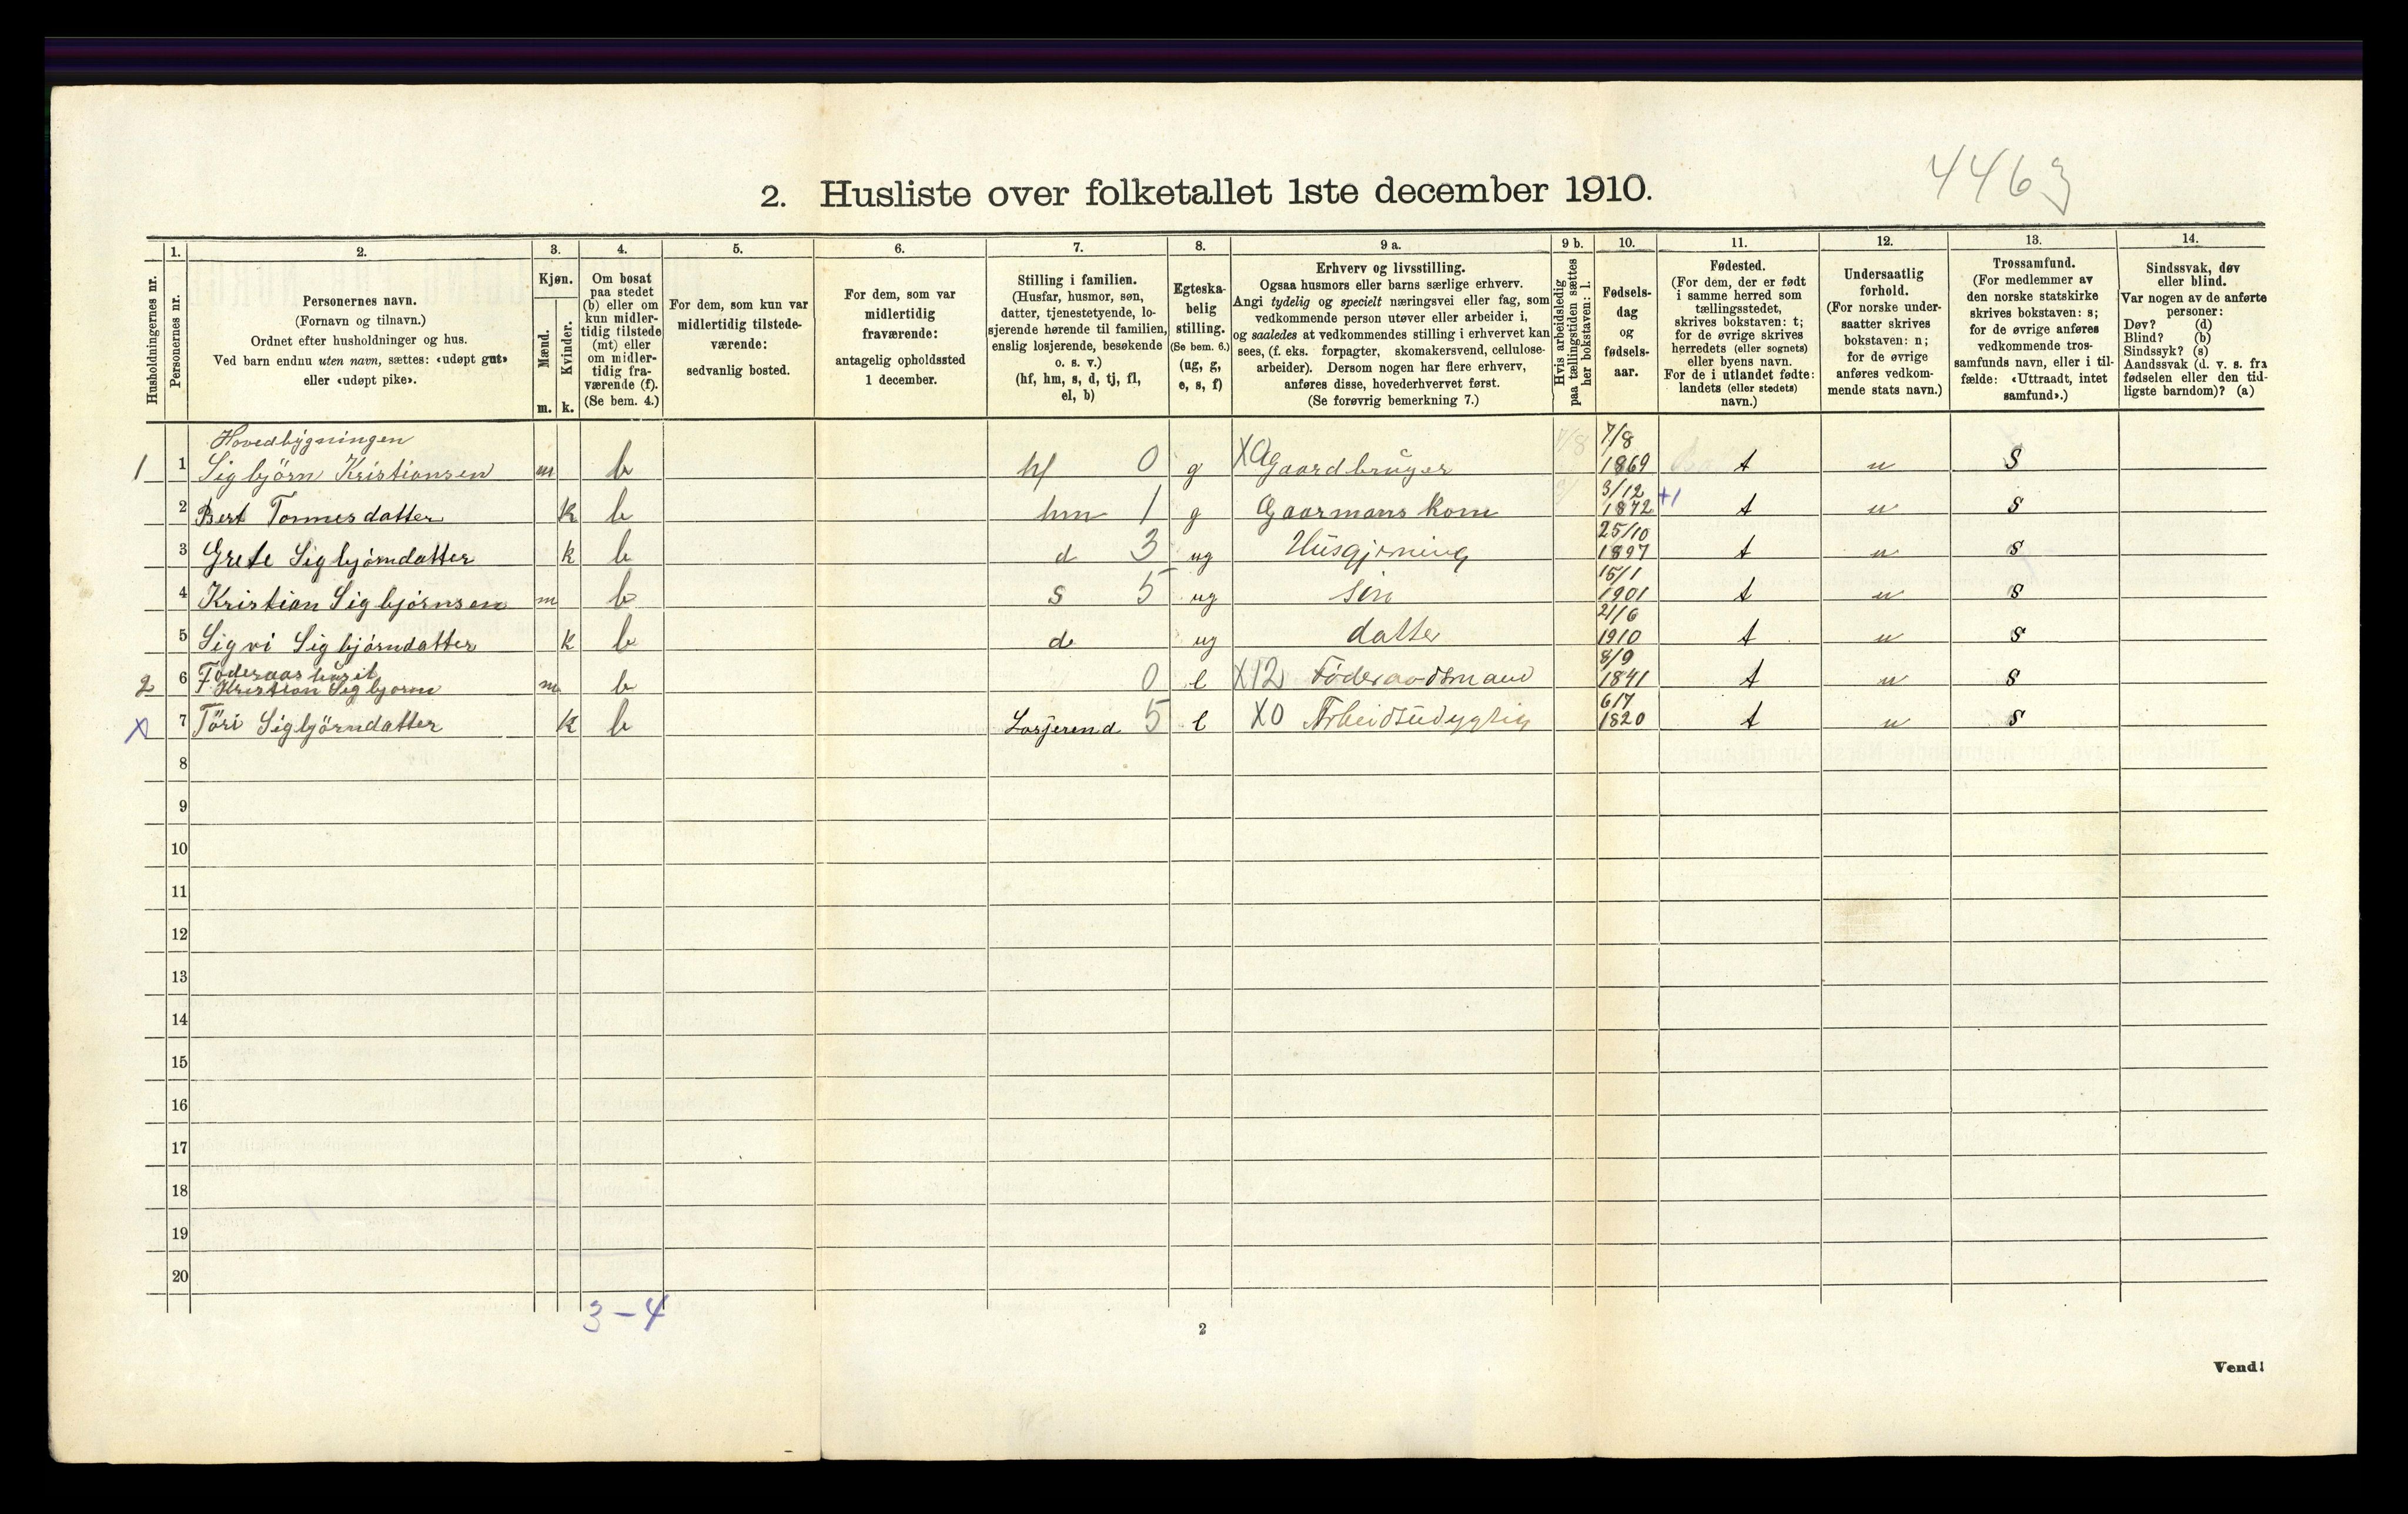 4463
2. Husliste over folketallet 1ste december 1910.
Husholdningernes nr.
1.
Personernes nr.
2.
Personernes navn.
(Fornavn og tilnavn.)
Ordnet efter husholdninger og hus.
Ved barn endnu uten navn, sættes: «udøpt gut»
eller «udøpt pike».
3.
Kjøn.
Mænd.
Kvinder.
m. k.
4.
Om bosat
paa stedet
(b) eller om
kun midler-
tidig tilstede
(mt) eller
om midler-
tidig fra-
værende (f).
(Se bem. 4.)
5.
For dem, som kun var
midlertidig tilstede-
værende:
sedvanlig bosted.
6.
For dem, som var
midlertidig
fraværende:
antagelig opholdssted
1 december.
7.
Stilling i familien.
(Husfar, husmor, søn,
datter, tjenestetyende, lo-
sjerende hørende til familien,
enslig losjerende, besøkende
o. s. v.)
(hf, hm, s, d, tj, fl,
el, b)
8.
Egteska-
belig
stilling.
(Se bem. 6.)
(ug, g,
e, s, f)
9 a.
Erhverv og livsstilling.
Ogsaa husmors eller barns særlige erhverv.
Angi tydelig og specielt næringsvei eller fag, som
vedkommende person utøver eller arbeider i,
og saaledes at vedkommendes stilling i erhvervet kan
sees, (f. eks. forpagter, skomakersvend, cellulose-
arbeider). Dersom nogen har flere erhverv,
anføres disse, hovederhvervet først.
(Se forøvrig bemerkning 7.)
9 b.
Hvis arbeidsledig
paa tællingstiden sættes
her bokstaven: l.
10.
Fødsels-
dag
og
fødsels-
aar.
11.
Fødested.
(For dem, der er født
i samme herred som
tællingsstedet,
skrives bokstaven: t;
for de øvrige skrives
herredets (eller sognets)
eller byens navn.
For de i utlandet fødte:
landets (eller stedets)
navn.)
12.
Undersaatlig
forhold.
(For norske under-
saatter skrives
bokstaven: n;
for de øvrige
anføres vedkom-
mende stats navn.)
13.
Trossamfund.
(For medlemmer av
den norske statskirke
skrives bokstaven: s;
for de øvrige anføres
vedkommende tros-
samfunds navn, eller i til-
fælde: «Uttraadt, intet
samfund».)
14.
Sindssvak, døv
eller blind.
Var nogen av de anførte
personer:
Døv? (d)
Blind? (b)
Sindssyk? (s)
Aandssvak (d. v. s. fra
fødselen eller den tid-
ligste barndom)? (a)
Hovedbygningen 7/8
1 1 Sigbjörn Kristiansen m b hf 0 g XA Gaardbruger 1869 t n S
3/12
2 Bert Tonnesdatter k b hm 1 g Gaarmans kone 1872 +1 t n s
25/10
3 Grete Sigbjörndatter k b d 3 ug Husgjerning 1897 t n s
15/1
4 Kristian Sigbjörnsen m b s 5 ug sön 1901 t n s
21/6
5 Sigvi Sigbjörndatter k b d ug datter 1910 t n s
8/9
2 6 Kristian Sigbjorn m b 0 e X12 Föderaadsmand 1841 t n s
6/7
X 7 Töri Sigbjörndatter k b Losjerend 5 e X0 Arbeidsudygtig 1820 t n s
8
9
10
11
12
13
14
15
16
17
18
19
20
3-4
2
Vend!